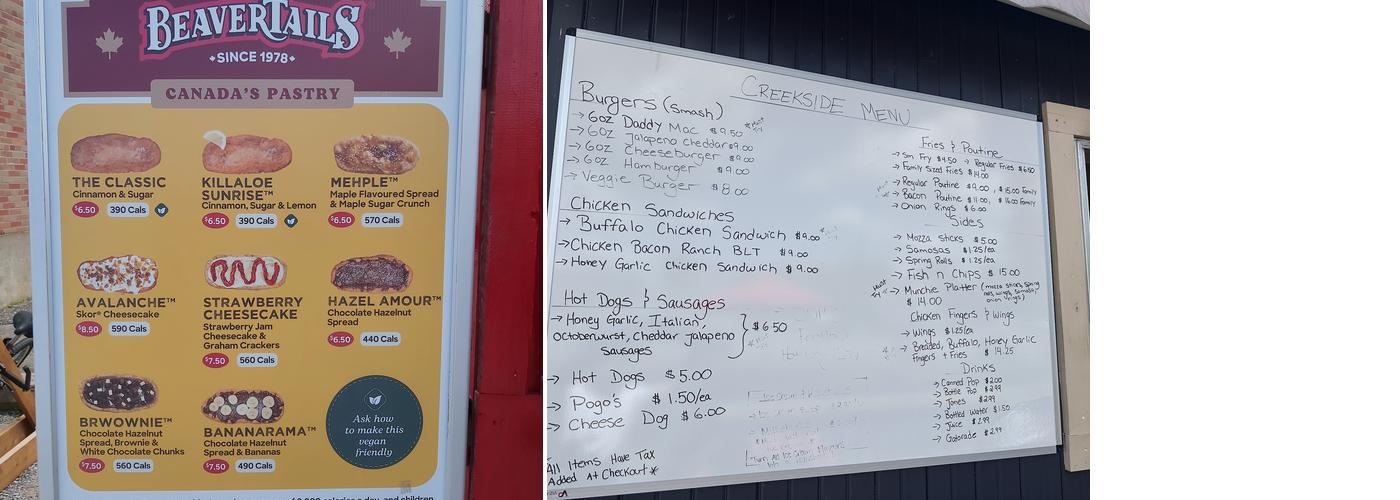 BEAVERTAILS
SINCE 1978
CANADA'S PASTRY
THE CLASSIC
Cinnamon & Sugar
$6.50 390 Cals
KILLALOE
SUNRISE™
Cinnamon, Sugar & Lemon
$6.50 390 Cals
MEHPLE™
Maple Flavoured Spread
& Maple Sugar Crunch
$6.50 570 Cals
AVALANCHE™
Skor® Cheesecake
$8.50 590 Cals
STRAWBERRY
CHEESECAKE
Strawberry Jam
Cheesecake &
Graham Crackers
$7.50 560 Cals
HAZEL AMOUR™
Chocolate Hazelnut
Spread
$6.50 440 Cals
BRWOWNIE™
Chocolate Hazelnut
Spread, Brownie &
White Chocolate Chunks
$7.50 560 Cals
BANANARAMA™
Chocolate Hazelnut
Spread & Bananas
$7.50 490 Cals
Ask how
to make this
vegan
friendly
calories a day, and children
CREEKSIDE MENU
Burgers (Smash)
→ 6oz Daddy Mac $9.50 *Must Try
→ 6oz Jalapeno cheddar $9.00
→ 6oz Cheeseburger $9.00
→ 6oz Hamburger $9.00
→ Veggie Burger $8.00
Chicken Sandwiches
→ Buffalo Chicken Sandwich $9.00
→ Chicken Bacon Ranch BLT $9.00
→ Honey Garlic Chicken Sandwich $9.00
Hot Dogs & Sausages
→ Honey Garlic, Italian,
Octoberwurst, Cheddar Jalapeno
Sausages } $6.50
→ Hot Dogs $5.00
→ Pogo's $1.50/ea
→ Cheese Dog $6.00
All Items Have Tax
Added At Checkout *
Fries & Poutine
→ Sm Fry $4.50 → Regular Fries $6.50
→ Family Sized Fries $14.00
→ Regular Poutine $9.00, $15.00 Family
→ Bacon Poutine $11.00, $16.00 Family
→ Onion Rings $6.00
Sides
→ Mozza Sticks $5.00
→ Samosas $1.25/ea
→ Spring Rolls $1.25/ea
→ Fish n Chips $15.00
Must Try → Munchie Platter (mozza sticks, spring
rolls, wings, samosa,
onion rings)
$14.00
Chicken Fingers & Wings
→ Wings $1.25/ea
→ Breaded, Buffalo, Honey Garlic
Fingers + Fries $14.25
Drinks
→ Canned Pop $2.00
→ Bottle Pop $2.99
→ Jones $2.99
→ Bottled Water $1.50
→ Juice $2.99
→ Gatorade $2.99